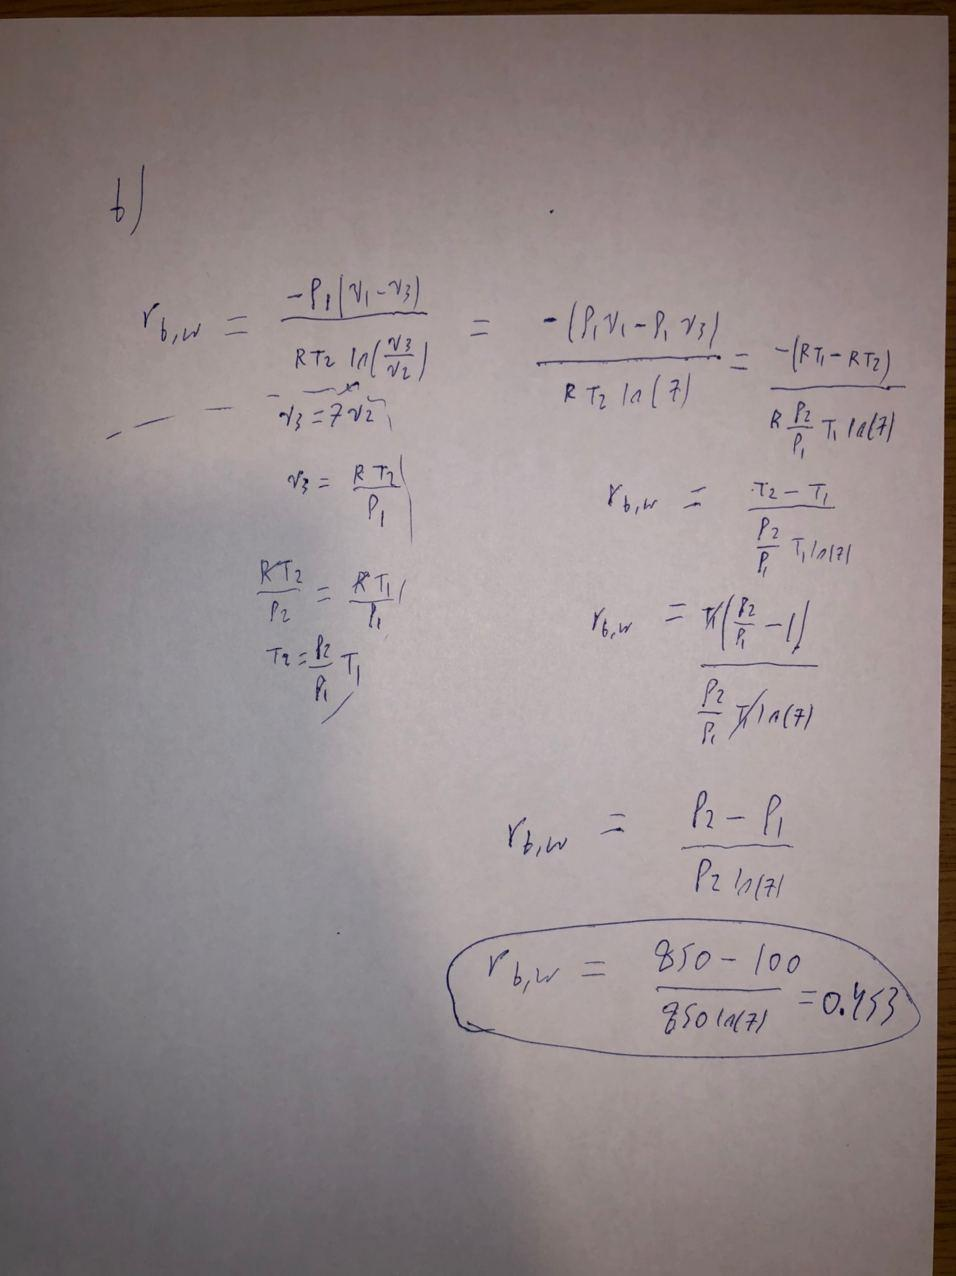 b)
r_{b,w} = \frac{-P_1(v_1-v_3)}{RT_2 \ln(\frac{v_3}{v_2})} = \frac{-(P_1v_1-P_1v_3)}{RT_2 \ln(7)} = \frac{-(RT_1-RT_2)}{R\frac{P_2}{P_1}T_1 \ln(7)}
v_3 = 7v_2
v_3 = \frac{RT_2}{P_1}
\frac{RT_2}{P_2} = \frac{RT_1}{P_1}
T_2 = \frac{P_2}{P_1} T_1
r_{b,w} = \frac{T_2 - T_1}{\frac{P_2}{P_1} T_1 \ln(7)}
r_{b,w} = \frac{T_1(\frac{P_2}{P_1} - 1)}{\frac{P_2}{P_1} T_1 \ln(7)}
r_{b,w} = \frac{P_2 - P_1}{P_2 \ln(7)}
r_{b,w} = \frac{850 - 100}{850 \ln(7)} = 0.453